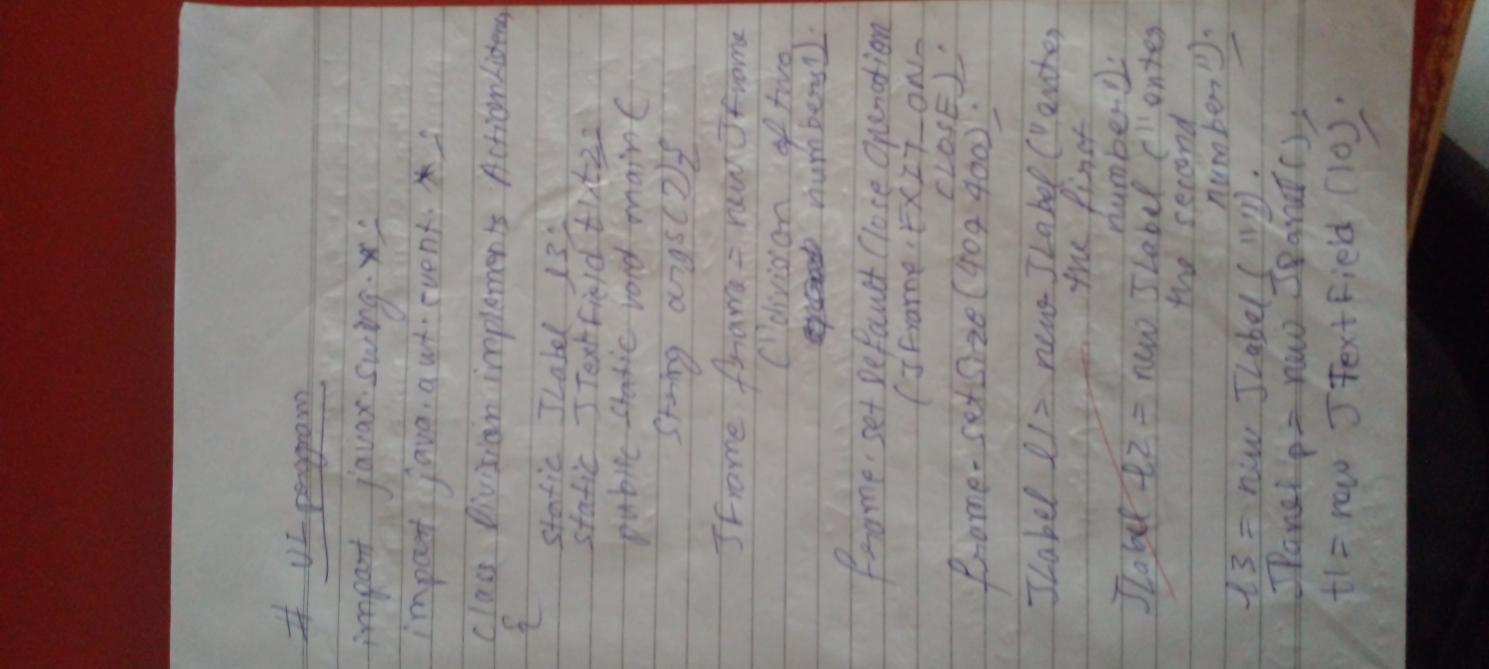 # UI program
import javax.swing.*;
import java.awt.event.*;
class Division implements ActionListener
{
static JLabel l3;
static JTextField t1,t2;
public static void main(
String args[]){
JFrame frame = new JFrame
("division of two
numbers");
frame.setDefaultCloseOperation
(JFrame.EXIT_ON_
CLOSE);
frame.setSize(400,400);
JLabel l1 = new JLabel("enter
the first
number");
JLabel l2 = new JLabel("enter
the second
number");
l3 = new JLabel("");
JPanel p = new JPanel();
t1 = new JTextField(10);